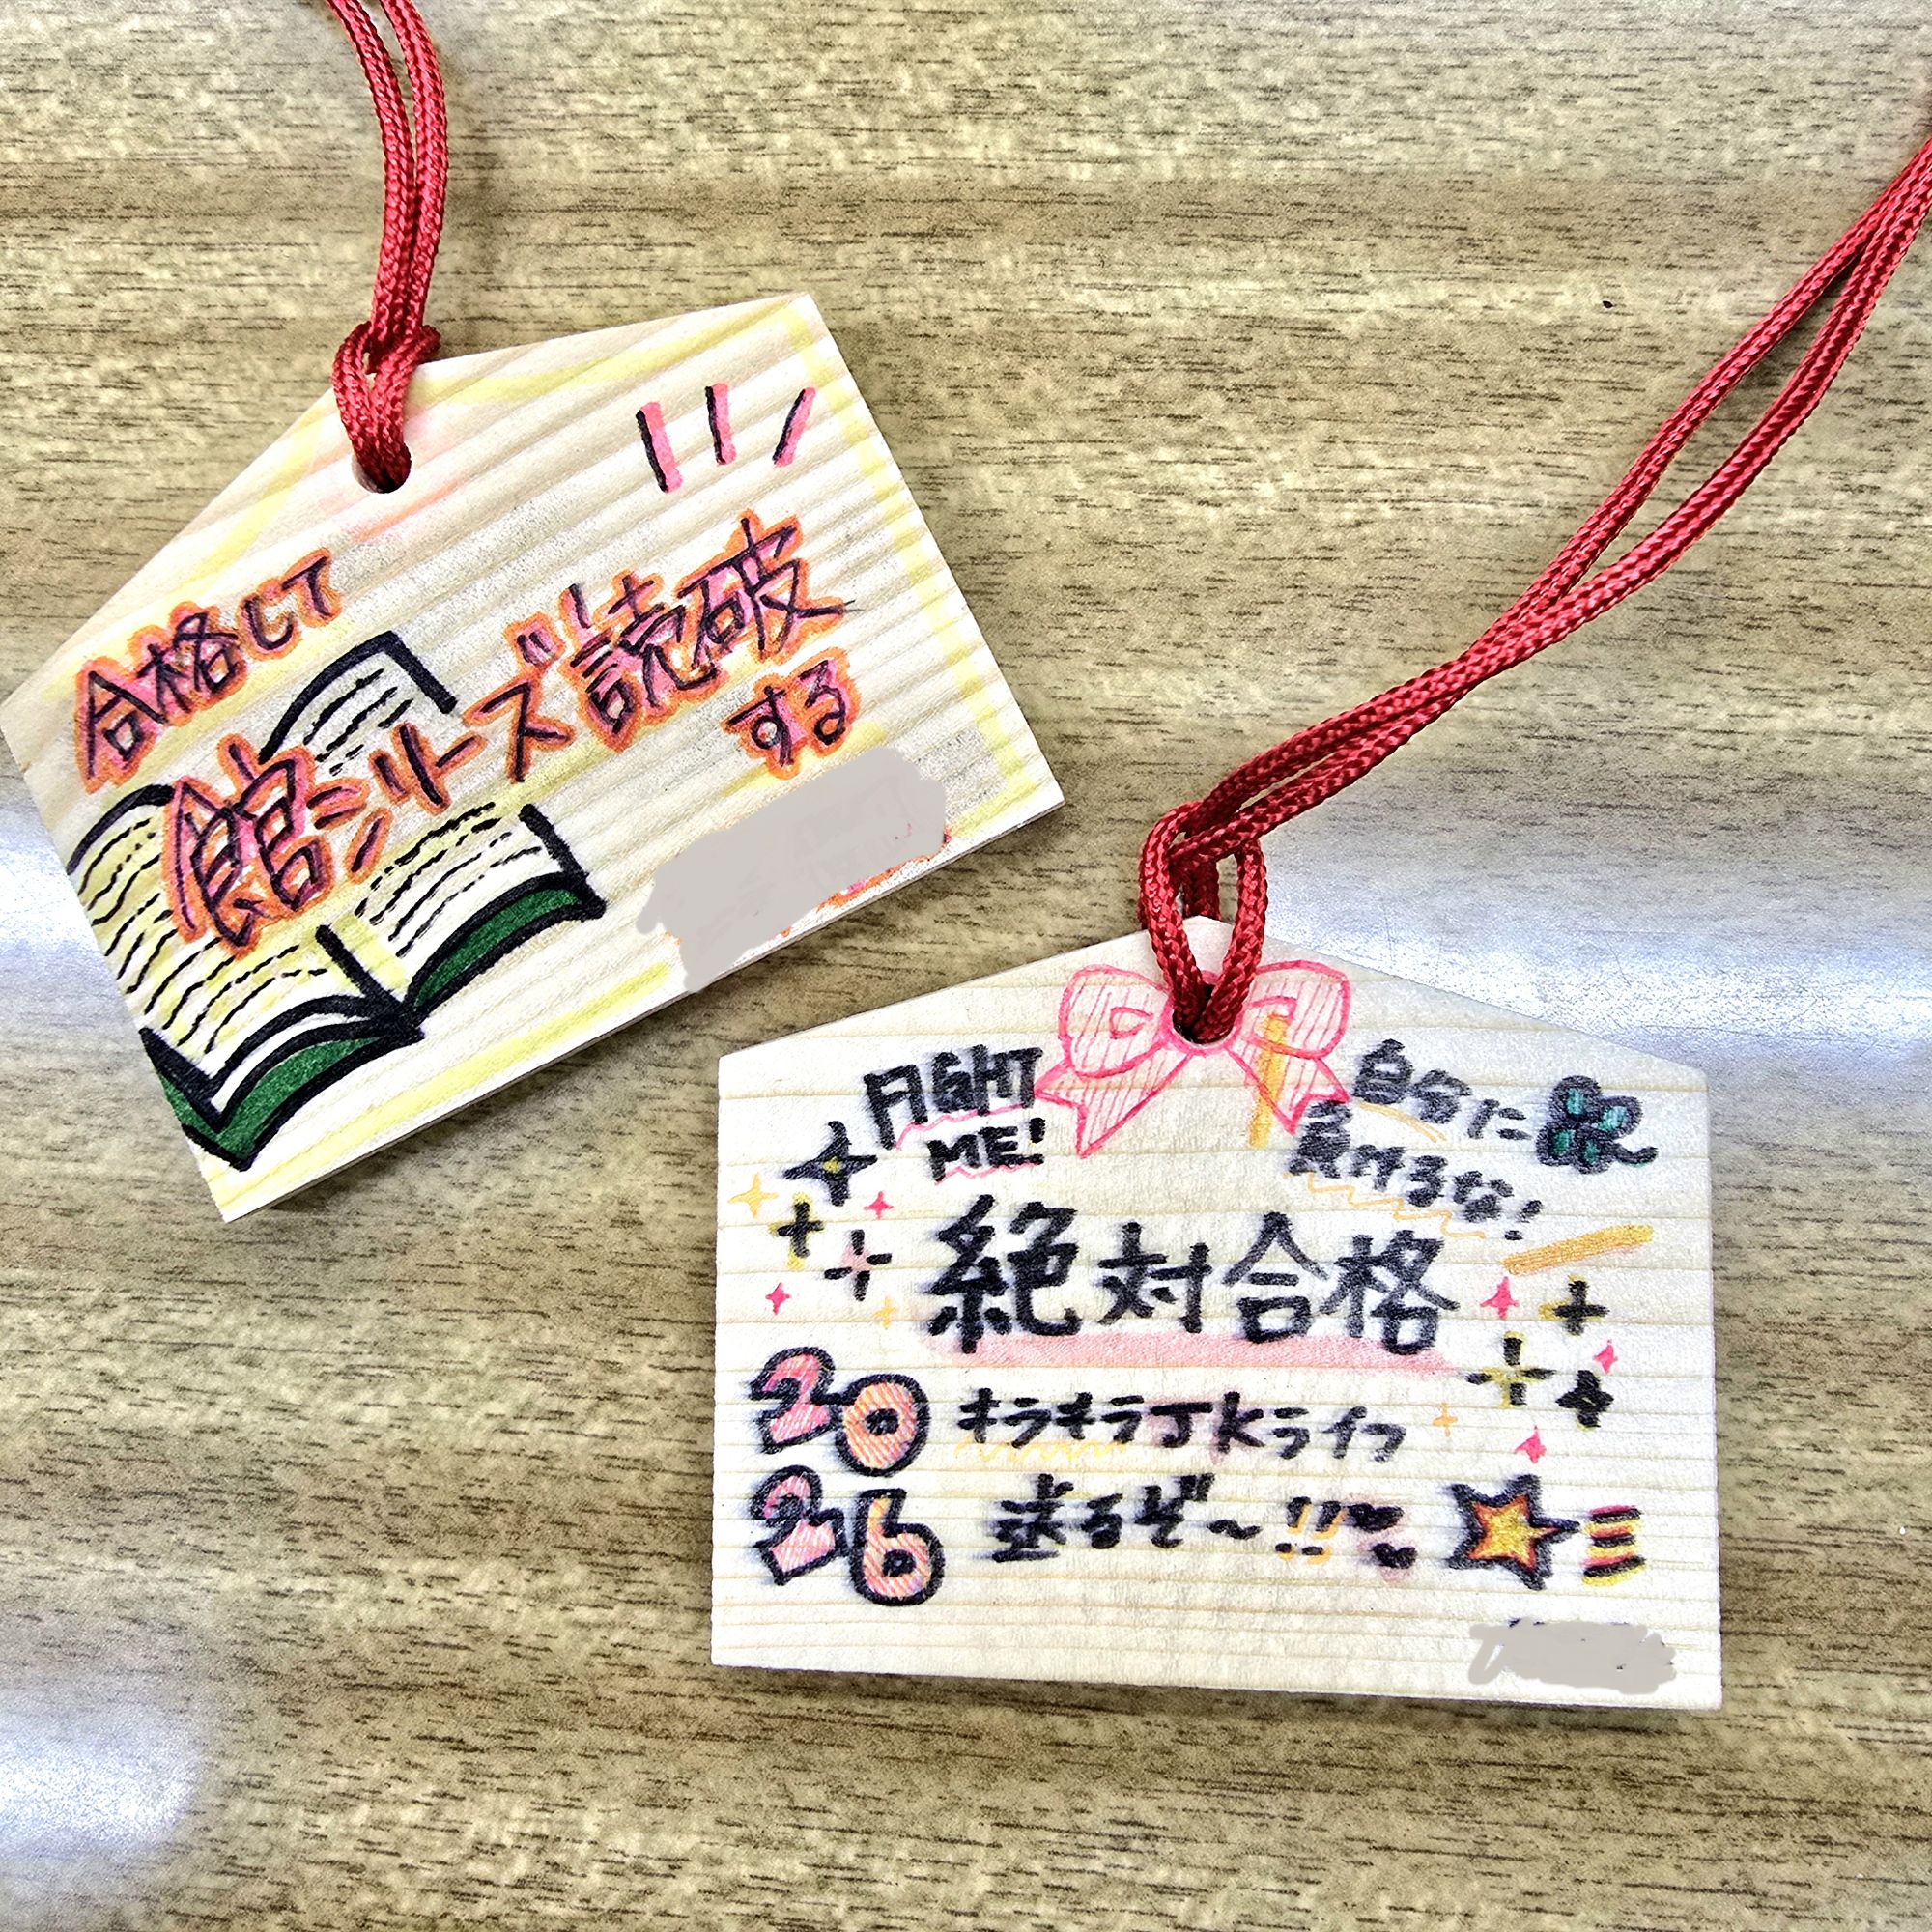 合格して
館シリーズ読破
する
FIGHT
ME!
自分に
負けるな!
絶対合格
20
26
キラキラJKライフ
送るぞ〜!!